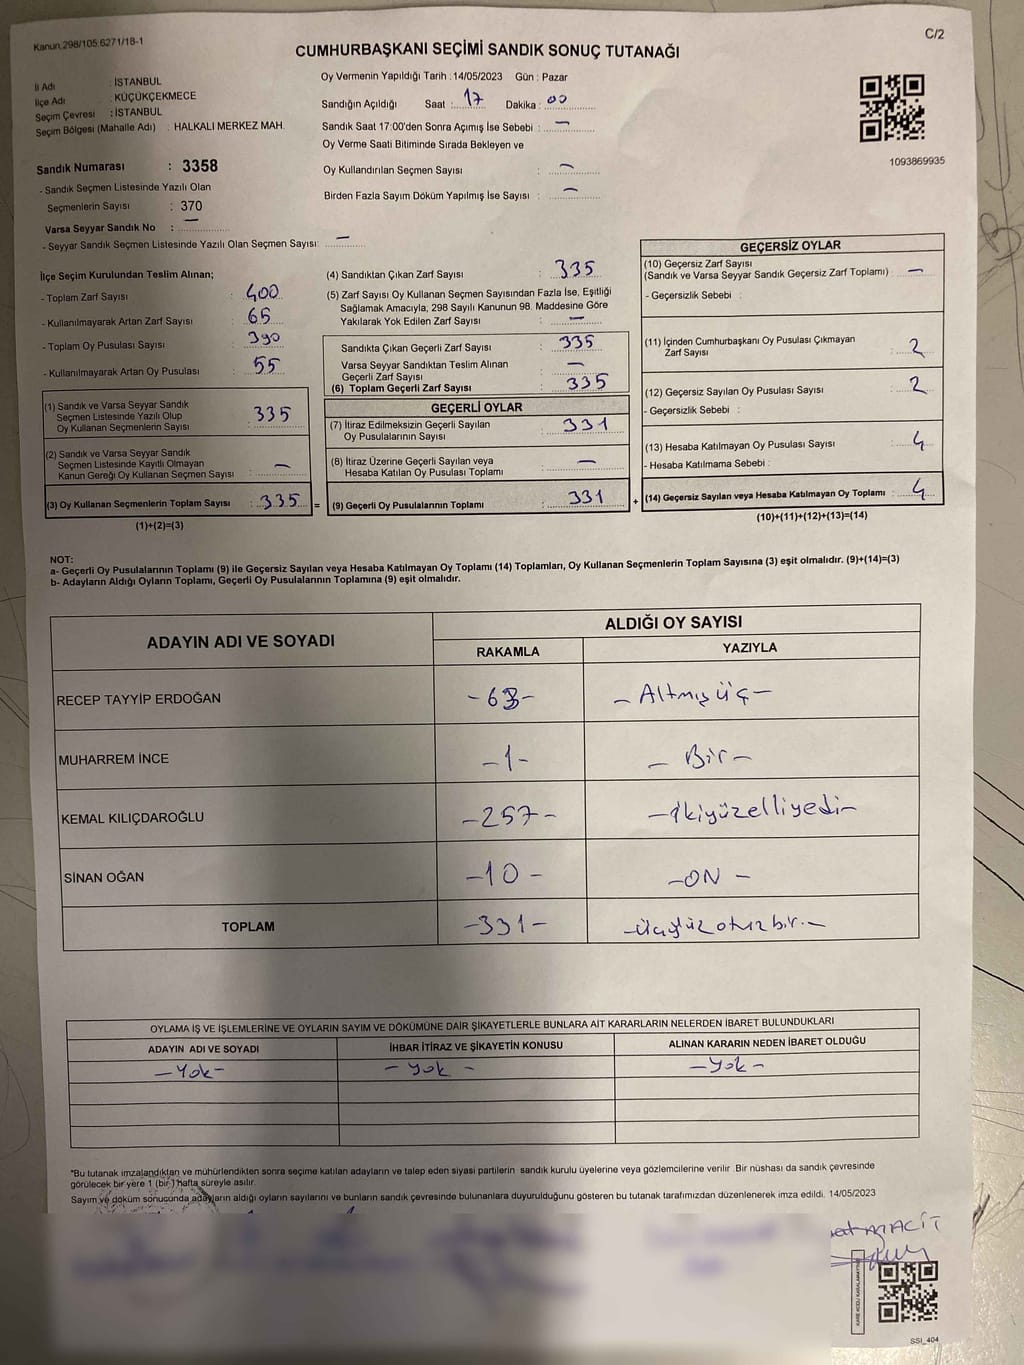 Kanun:298/105:6271/18-1
C/2
CUMHURBAŞKANI SEÇİMİ SANDIK SONUÇ TUTANAĞI
İl Adı : İSTANBUL
İlçe Adı : KÜÇÜKÇEKMECE
Seçim Çevresi : İSTANBUL
Seçim Bölgesi (Mahalle Adı) : HALKALI MERKEZ MAH.
Oy Vermenin Yapıldığı Tarih : 14/05/2023 Gün : Pazar
Sandığın Açıldığı Saat : 17 Dakika : 00
Sandık Saat 17:00'den Sonra Açımış İse Sebebi : —
Oy Verme Saati Bitiminde Sırada Bekleyen ve
Oy Kullandırılan Seçmen Sayısı : —
Birden Fazla Sayım Döküm Yapılmış İse Sayısı : —
1093869935
Sandık Numarası : 3358
- Sandık Seçmen Listesinde Yazılı Olan
Seçmenlerin Sayısı : 370
Varsa Seyyar Sandık No : —
- Seyyar Sandık Seçmen Listesinde Yazılı Olan Seçmen Sayısı: —
İlçe Seçim Kurulundan Teslim Alınan;
- Toplam Zarf Sayısı : 400
- Kullanılmayarak Artan Zarf Sayısı : 65
- Toplam Oy Pusulası Sayısı : 390
- Kullanılmayarak Artan Oy Pusulası : 55
(1) Sandık ve Varsa Seyyar Sandık
Seçmen Listesinde Yazılı Olup
Oy Kullanan Seçmenlerin Sayısı : 335
(2) Sandık ve Varsa Seyyar Sandık
Seçmen Listesinde Kayıtlı Olmayan
Kanun Gereği Oy Kullanan Seçmen Sayısı : —
(3) Oy Kullanan Seçmenlerin Toplam Sayısı : 335 =
(1)+(2)=(3)
(4) Sandıktan Çıkan Zarf Sayısı : 335
(5) Zarf Sayısı Oy Kullanan Seçmen Sayısından Fazla İse, Eşitliği
Sağlamak Amacıyla, 298 Sayılı Kanunun 98. Maddesine Göre
Yakılarak Yok Edilen Zarf Sayısı : —
Sandıkta Çıkan Geçerli Zarf Sayısı : 335
Varsa Seyyar Sandıktan Teslim Alınan
Geçerli Zarf Sayısı : —
(6) Toplam Geçerli Zarf Sayısı : 335
GEÇERLİ OYLAR
(7) İtiraz Edilmeksizin Geçerli Sayılan
Oy Pusulalarının Sayısı : 331
(8) İtiraz Üzerine Geçerli Sayılan veya
Hesaba Katılan Oy Pusulası Toplamı : —
(9) Geçerli Oy Pusulalarının Toplamı : 331 +
GEÇERSİZ OYLAR
(10) Geçersiz Zarf Sayısı
(Sandık ve Varsa Seyyar Sandık Geçersiz Zarf Toplamı) : —
- Geçersizlik Sebebi :
(11) İçinden Cumhurbaşkanı Oy Pusulası Çıkmayan
Zarf Sayısı : 2
(12) Geçersiz Sayılan Oy Pusulası Sayısı : 2
- Geçersizlik Sebebi :
(13) Hesaba Katılmayan Oy Pusulası Sayısı : 4
- Hesaba Katılmama Sebebi :
(14) Geçersiz Sayılan veya Hesaba Katılmayan Oy Toplamı : 4
(10)+(11)+(12)+(13)=(14)
NOT:
a- Geçerli Oy Pusulalarının Toplamı (9) ile Geçersiz Sayılan veya Hesaba Katılmayan Oy Toplamı (14) Toplamları, Oy Kullanan Seçmenlerin Toplam Sayısına (3) eşit olmalıdır. (9)+(14)=(3)
b- Adayların Aldığı Oyların Toplamı, Geçerli Oy Pusulalarının Toplamına (9) eşit olmalıdır.
ADAYIN ADI VE SOYADI
ALDIĞI OY SAYISI
RAKAMLA YAZIYLA
RECEP TAYYİP ERDOĞAN -63- -Altmışüç-
MUHARREM İNCE -1- -Bir-
KEMAL KILIÇDAROĞLU -257- -ikiyüzelliyedi-
SİNAN OĞAN -10- -ON-
TOPLAM -331- -üçyüzotuzbir.-
OYLAMA İŞ VE İŞLEMLERİNE VE OYLARIN SAYIM VE DÖKÜMÜNE DAİR ŞİKAYETLERLE BUNLARA AİT KARARLARIN NELERDEN İBARET BULUNDUKLARI
ADAYIN ADI VE SOYADI İHBAR İTİRAZ VE ŞİKAYETİN KONUSU ALINAN KARARIN NEDEN İBARET OLDUĞU
-Yok- -yok- -yok-
*Bu tutanak imzalandıktan ve mühürlendikten sonra seçime katılan adayların ve talep eden siyasi partilerin sandık kurulu üyelerine veya gözlemcilerine verilir. Bir nüshası da sandık çevresinde
görülecek bir yere 1 (bir) hafta süreyle asılır.
Sayım ve döküm sonucunda adayların aldığı oyların sayılarını ve bunların sandık çevresinde bulunanlara duyurulduğunu gösteren bu tutanak tarafımızdan düzenlenerek imza edildi. 14/05/2023
MACİT
SSI_404